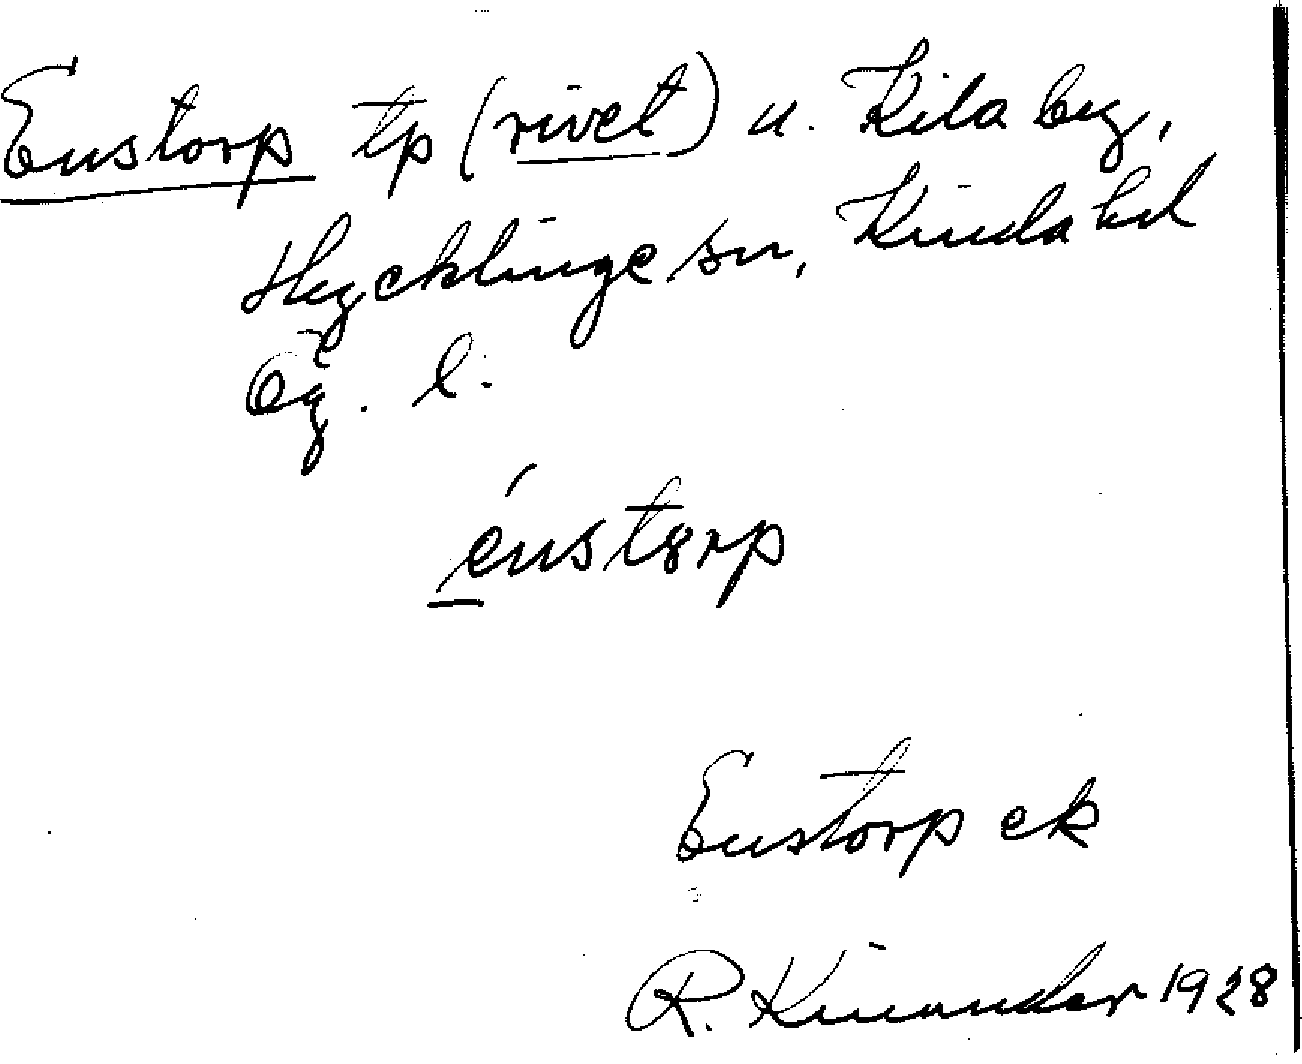 Enstorp tp (rivet) u. Kila by,
Hycklinge sn, Kinda hd
Ög. l.
énstorp
Enstorp ek
R. Kinander 1928